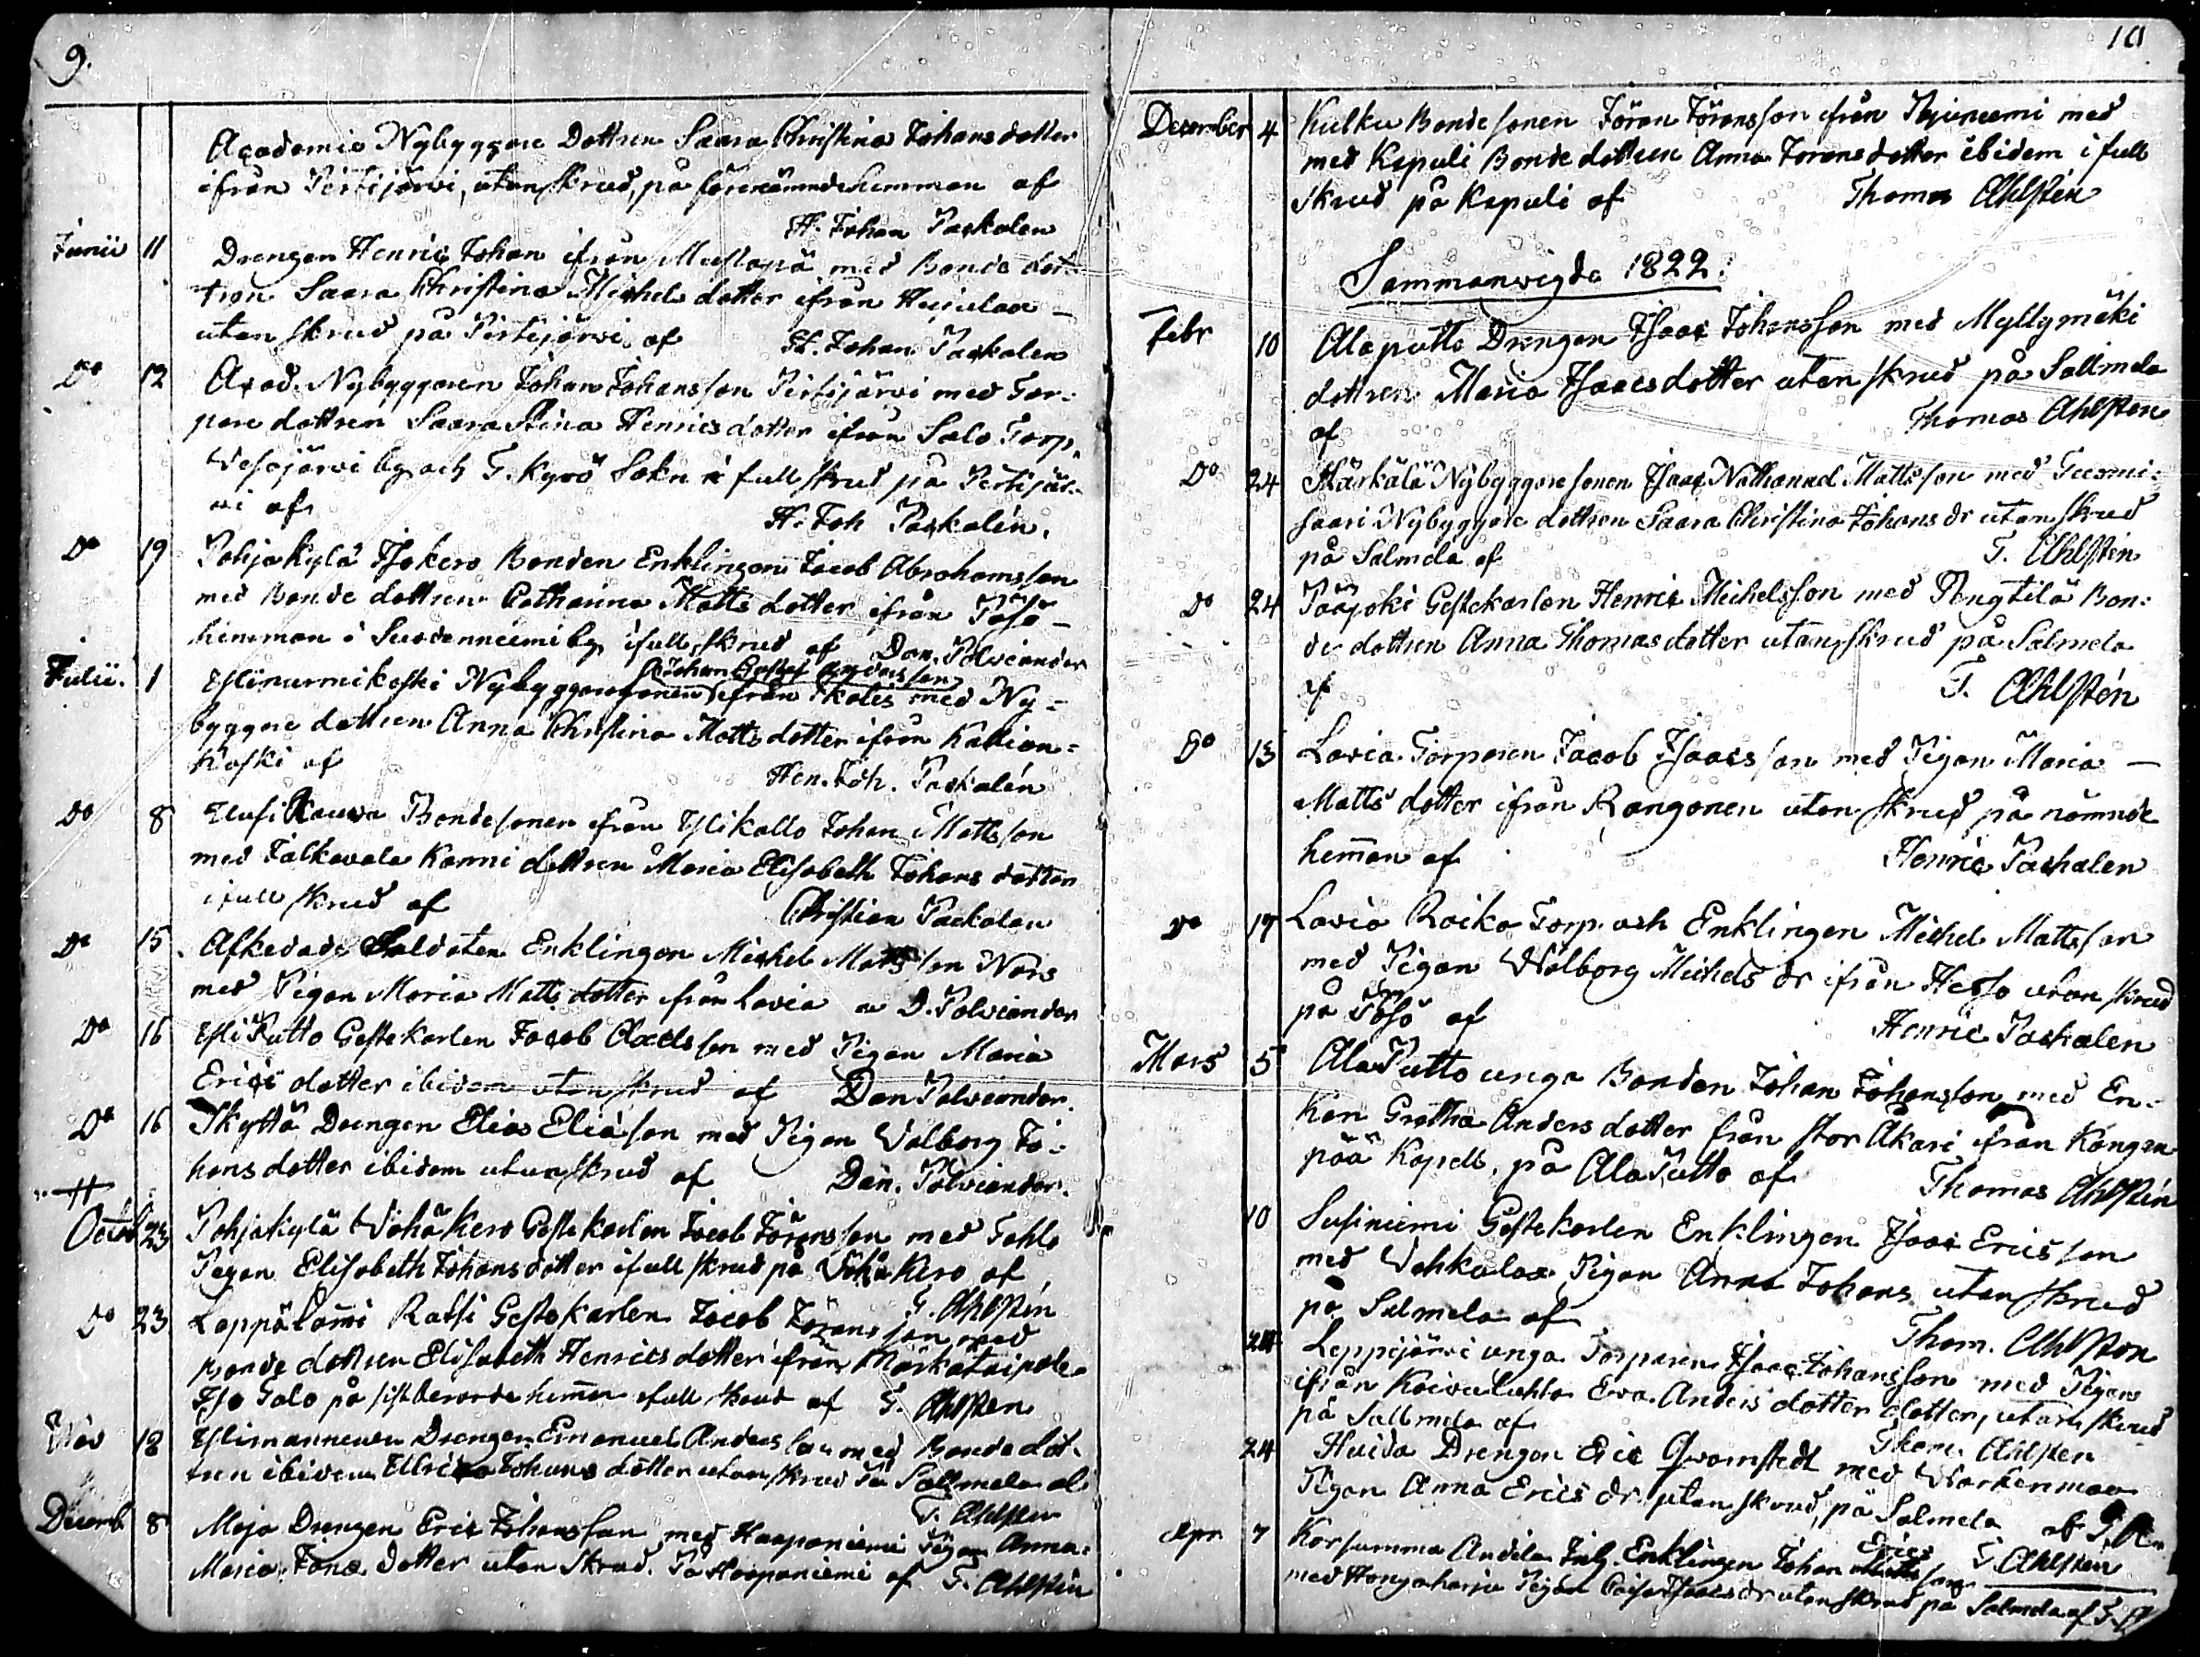 9.
Academie Nybyggare Dottren Saara Christina Johans dotter
ifrån Pertijärvi, utan skrud, på förenämnde hemman af
H. Johan Paskalen
Junii 11 Drengen Henric Johan ifrån Mustapä med Bonde dot-
tren Saara Christina Michels dotter ifrån
utan skrud på Pertijärvi af H. Johan Paskalen
Do 12 Acad. Nybyggaren Johan Johansson Pertijärvi med Tor-
pare dottren Saara Stina Henrics dotter ifrån Salo Torp,
Vesajärvi by och T. Kyrö Sokn i full skrud på Pertijär-
vi af H. Joh Paskalén.
Do 19 Pohjakylä Isokero Bonden Enklingen Jacob Abrahamsson
med Bonde dottren Catharina Matts dotter ifrån Pösö
hemman i Suodenniemi by, i full skrud af Dan. Polviander
Julii. 1 Ylinurmikoski Nybyggaresonen Johan Gustaf Andersson ifrån Ikalis med Ny-
byggare dottren Anna Christina Matts dotter ifrån Kallion-
koski af Hen. Joh. Paskalén
Do 8 Uusi Rauva Bondesonen ifrån Ylikallo Johan Mattsson
med Jalkavala Kanni dottren Maria Elisabeth Johans dotter
i full skrud af Christian Paskalen
Do 15. Afskedade Soldaten Enklingen Michel Mattsson Nars
med Pigan Maria Matts dotter ifrån Lavia af D. Polviander
Do 16 Yli Putto Gestekarlen Jacob Axelsson med Pigan Maria
Erics dotter ibidem utan skrud af Dan Polviander.
Do 16 Skyttä Drengen Elias Eliasson med Pigan Valborg Jo-
hans dotter ibidem utan skrud af Dan. Polviander.
Octob 23 Pohjakylä Vähä Kero Gestekarlen Jacob Jöransson med Tohlo
Pigan Elisabeth Johans dotter i full skrud på Vähä Kero af
T. Ahlstén
Do 23 Leppälammi Ratsi Gestekarlen Jacob Jöransson med
Bonde dottren Elisabeth Henrics dotter ifrån Märkätaipale
Iso Talo på sistberörde hemman i full skrud af T. Ahlsten
Nov 18 Ylimannewen Drengen Emanuel Andersson med Bonde dot-
tren ibidem Ulrica Johans dotter utan skrud På Sallmela af
T. Ahlsten
Decemb 8 Maja Drengen Eric Johansson med Haapaniemi Pigan Anna
Maria Jöns dotter utan skrud. På Haapaniemi af T. Ahlstén
10
December 4 Kulku Bondesonen Jöran Jöransson ifrån med
med Kapuli Bonde dottren Anna Jörans dotter ibidem i full
skrud på Kapuli af Thomas Ahlstén
Sammanvigde 1822.
Febr 10 Alaputto Drengen Isaac Johansson med Myllymäki
dottren Maria Isaacs dotter utan skrud på Sallmela
af Thomas Ahlsten
Do 24 Kärkälä Nybyggaresonen Isaac Nathanael Mattsson med Tuomi-
saari Nybyggare dottren Saara Christina Johans dr utan skrud
på Salmela af T. Ahlstén
Do 24 Pääjoki Gestekarlen Henric Michelsson med Pengtilä Bon-
de dottren Anna Thomas dotter utan skrud på Salmela
af T. Ahlstén
Do 13 Lavia Torparen Jacob Isaacsson med Pigan Maria
Matts dotter ifrån Rangonen utan skrud på nämnde
hemman af Henric Paskalen
Do 19 Lavia Raiko Torp. och Enklingen Michel Mattsson
med Pigan Walborg Michels dr ifrån Hesso utan skrud
på Pösö af Henric Paskalen
Mars 5 Ala Putto unga Bonden Johan Johansson med En-
kan Gretha Anders dotter från Stor Äkäri ifrån Kangan-
pää Kapell, på Ala Putto af Thomas Ahlstén
10 Susiniemi Gestekarlen Enklingen Isaac Ericsson
med Vehkalax Pigan Anna Johans utan skrud
på Salmela af Thom. Ahlsten
24 Leppijärvi unga Torparen Isaac Johansson med Pigan
ifrån Koivuluhta Eva Anders dotter dotter, utan skrud
på Sallmela af Thom. Ahlsten
24 Huida Drengen Eric Qvarnstedt med Warkenmaa
Pigan Anna Erics dr. utan skrud, på Salmela af T. A
T. Ahlstén
Apr 7 Korsumma Andila Enklingen Johan Ericsson
med Hongoharju Pigan Caisa Isaacs dr utan skrud på Salmela af T. A